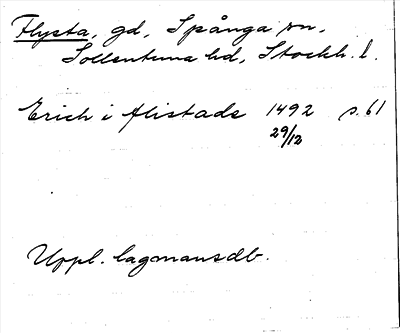 Flysta, gd, Spånga sn,
Sollentuna hd, Stockh. l.
Erich i flistade 1492 s. 61
29/12
Uppl. lagmansdb.